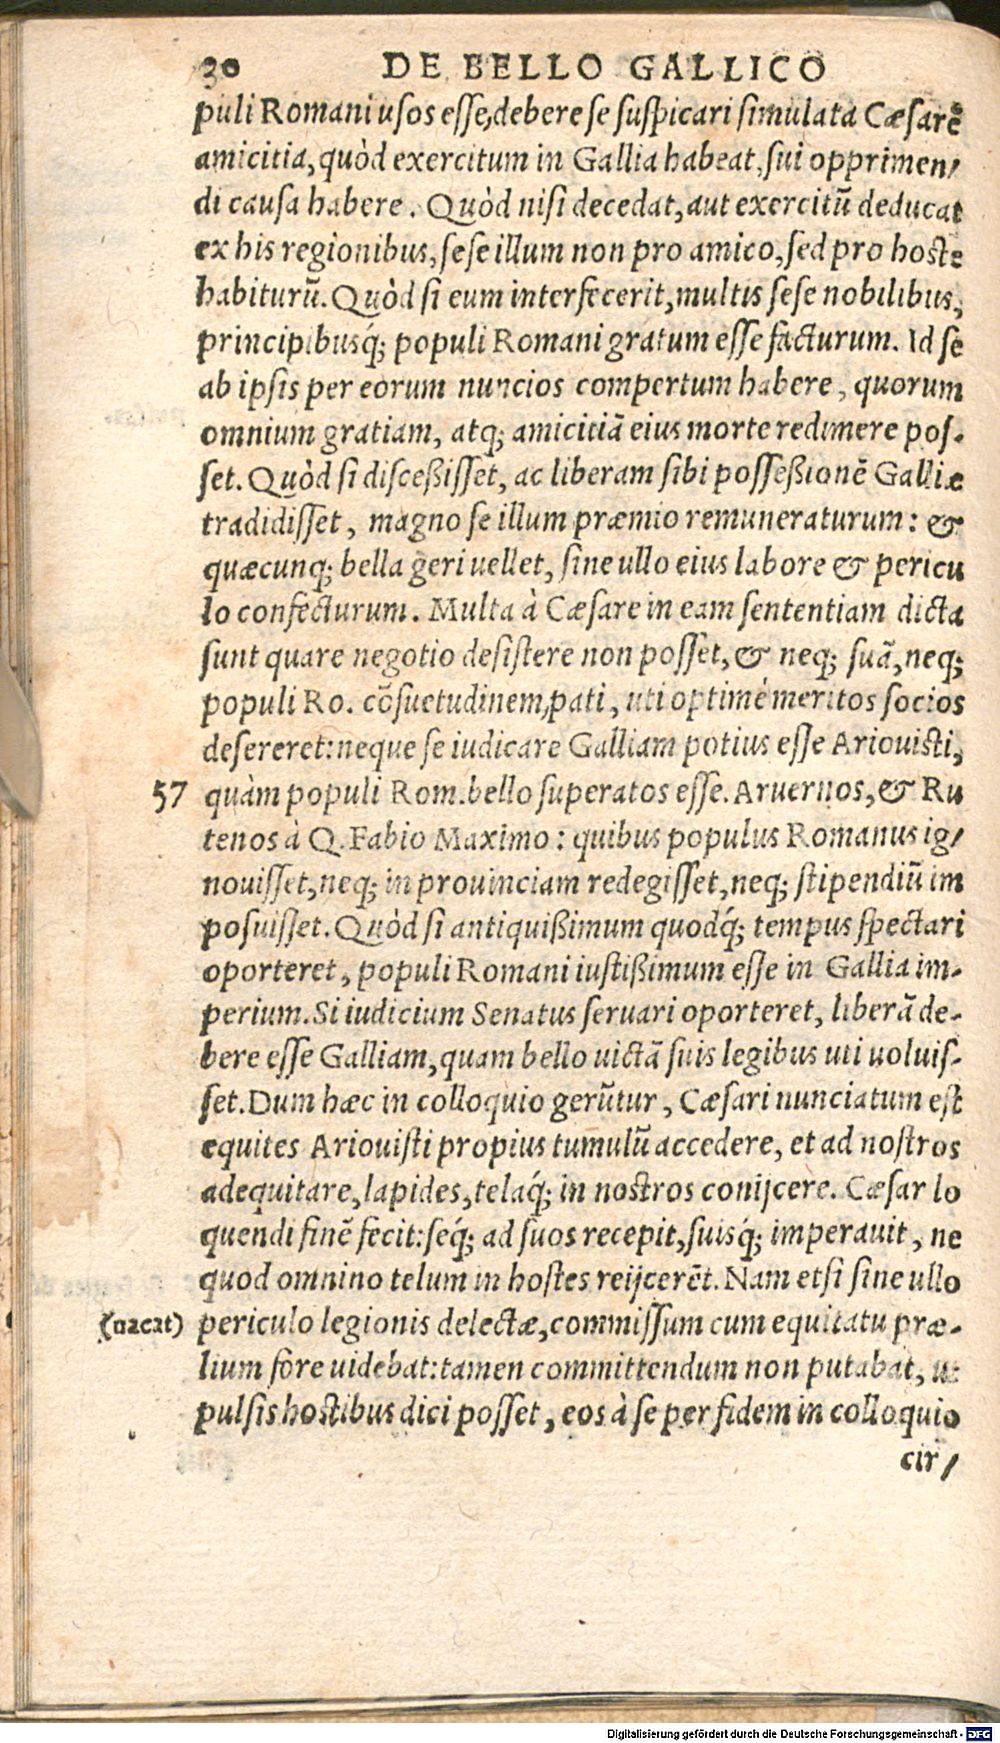 30 DE BELLO GALLICO
puli Romani usos esse, debere se suspicari simulata Cæsarẽ
amicitia, quòd exercitum in Gallia habeat, sui opprimen/
di causa habere. Quòd nisi decedat, aut exercitũ deducat
ex his regionibus, sese illum non pro amico, sed pro hoste
habiturũ. Quòd si eum interfecerit, multis sese nobilibus,
principibusq́; populi Romani gratum esse facturum. Id se
ab ipsis per eorum nuncios compertum habere, quorum
omnium gratiam, atq; amicitiã eius morte redimere pos-
set. Quòd si disceßisset, ac liberam sibi posseßionẽ Galliæ
tradidisset, magno se illum præmio remuneraturum: &
quæcunq; bella geri uellet, sine ullo eius labore & pericu
lo confecturum. Multa à Cæsare in eam sententiam dicta
sunt quare negotio desistere non posset, & neq; suã, neq;
populi Ro. cõsuetudinem, pati, uti optimè meritos socios
desereret: neque se iudicare Galliam potius esse Ariouisti,
57 quàm populi Rom. bello superatos esse. Aruernos, & Ru
tenos à Q. Fabio Maximo: quibus populus Romanus ig/
nouisset, neq; in prouinciam redegisset, neq; stipendiũ im
posuisset. Quòd si antiquißimum quodq́; tempus spectari
oporteret, populi Romani iustißimum esse in Gallia im-
perium. Si iudicium Senatus seruari oporteret, liberã de-
bere esse Galliam, quam bello uictã suis legibus uti uoluis-
set. Dum hæc in colloquio gerũtur, Cæsari nunciatum est
equites Ariouisti propius tumulũ accedere, et ad nostros
adequitare, lapides, telaq́; in nostros conijcere. Cæsar lo
quendi finẽ fecit: seq́; ad suos recepit, suisq́; imperauit, ne
quod omnino telum in hostes reijcerẽt. Nam etsi sine ullo
(uacat) periculo legionis delectæ, commissum cum equitatu præ-
lium fore uidebat: tamen committendum non putabat, ut
pulsis hostibus dici posset, eos à se per fidem in colloquio
cir/
Digitalisierung gefördert durch die Deutsche Forschungsgemeinschaft - DFG